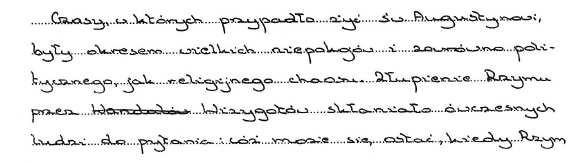 Czasy, w których przypadło żyć św. Augustynowi,
były okresem wielkich niepokojów i zarówno poli-
tycznego, jak religijnego chaosu. Złupienie Rzymu
przez Wandalów Wizygotów skłaniało ówczesnych
ludzi do pytania: cóż może się ostać, kiedy Rzym